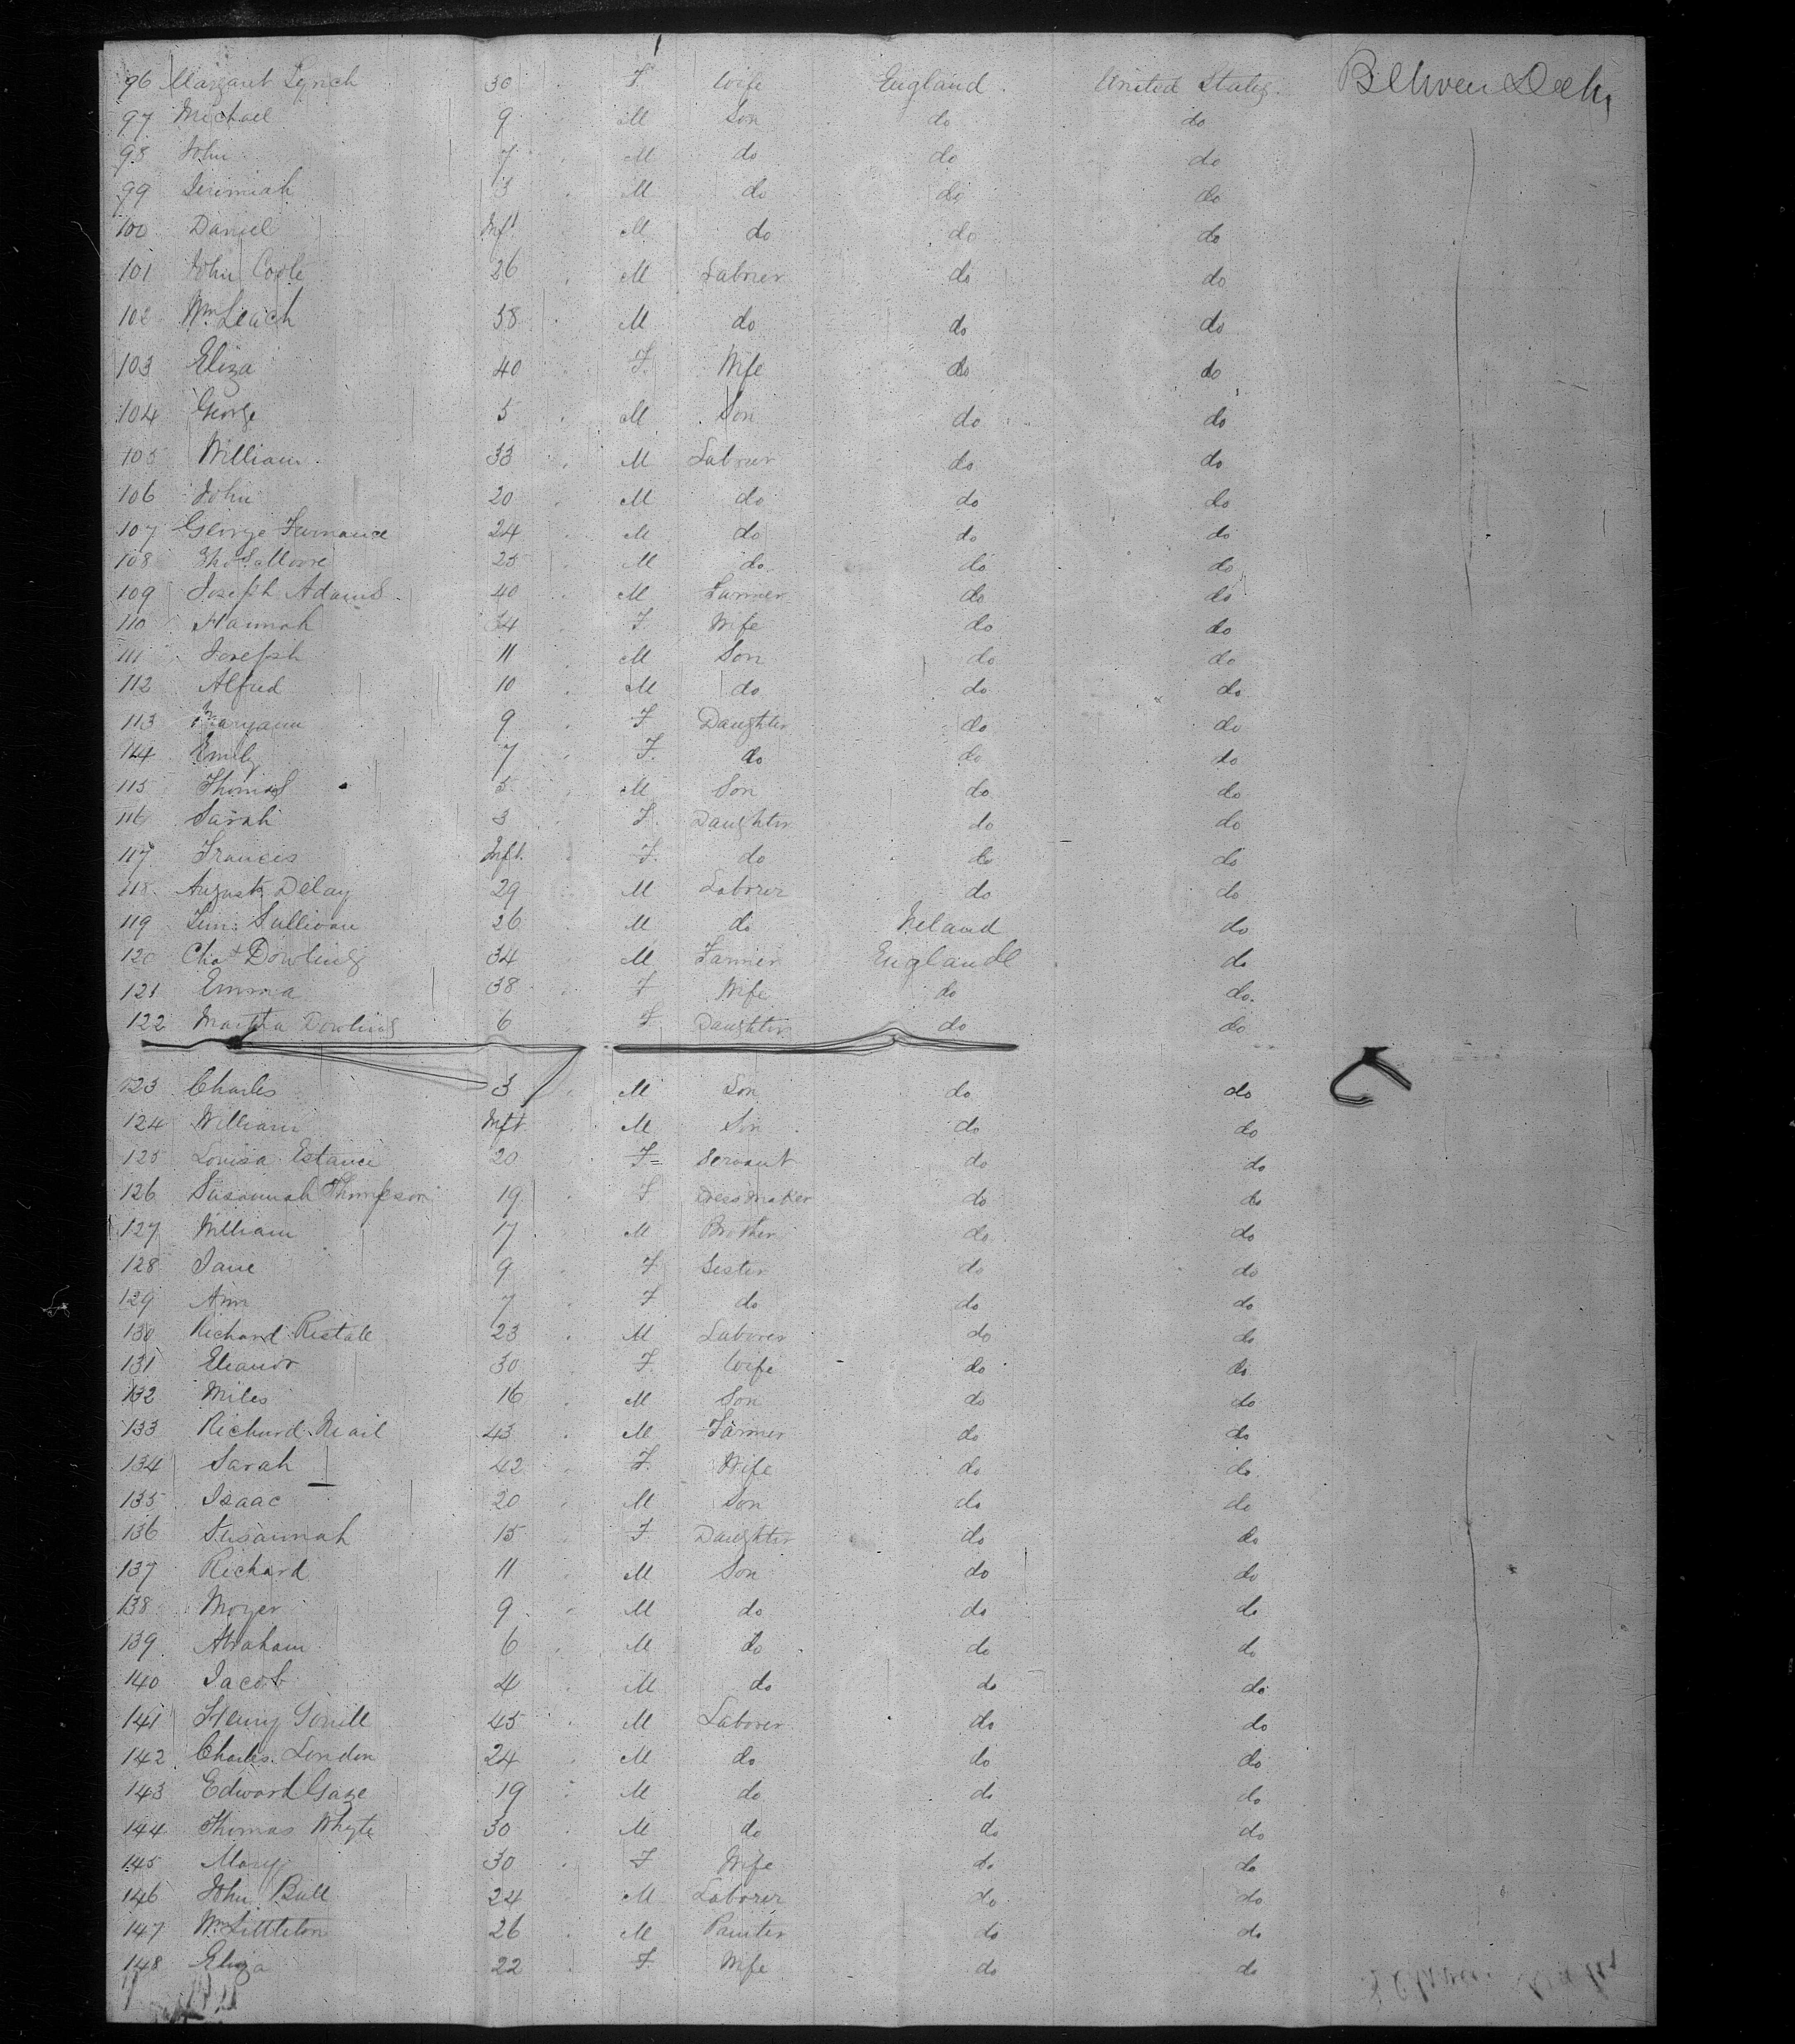 96 Margaret Lynch 30 F. Wife England United States Between Decks
97 Michael 9 M Son do do
98 John 7 M do do do
99 Jerimiah 3 M do do do
100 Daniel Inft M do do do
101 John Coote 26 M Labrier do do
102 Wm Leach 38 M do do do
103 Eliza 40 F. Wife do do
104 George 5 M Son do do
105 William 33 M Labrier do do
106 John 20 M do do do
107 George Furnance 24 M do do do
108 Thos Moore 25 M do do do
109 Joseph Adams 40 M Farmer do do
110 Hannah 34 F. Wife do do
111 Joseph 11 M Son do do
112 Alfred 10 M do do do
113 Maryann 9 F Daughter do do
114 Emily 7 F. do do do
115 Thomas 5 M Son do do
116 Sarah 3 F. Daughter do do
117 Francis Inft. F. do do do
118 August Delay 29 M Laborer do do
119 Tim. Sullivan 26 M do Ireland do
120 Chas Dowling 34 M Farmer England do
121 Emma 38 F Wife do do.
122 Martha Dowling 6 F Daughter do do
123 Charles 3 M Son do do
124 William Inft M Son do do
125 Louisa Estance 20 F Servant do do
126 Susannah Thompson 19 F Dressmaker do do
127 William 17 M Brother do do
128 Jane 9 F Sister do do
129 Ann 7 F do do do
130 Richard Ristall 23 M Laborer do do
131 Eleanor 30 F. Wife do do
132 Miles 16 M Son do do
133 Richard Nail 43 M Farmer do do
134 Sarah 42 F. Wife do do
135 Isaac 20 M Son do do
136 Susannah 15 F. Daughter do do
137 Richard 11 M Son do do
138 Moyer 9 M do do do
139 Abraham 6 M do do do
140 Jacob 4 M do do do
141 Henry 45 M Laborer do do
142 Charles London 24 M do do do
143 Edward Gaze 19 M do do do
144 Thomas Whyte 30 M do do do
145 Mary 30 F Wife do do
146 John Bull 24 M Laborer do do
147 Wm Littleton 26 M Painter do do
148 Eliza 22 F. Wife do do